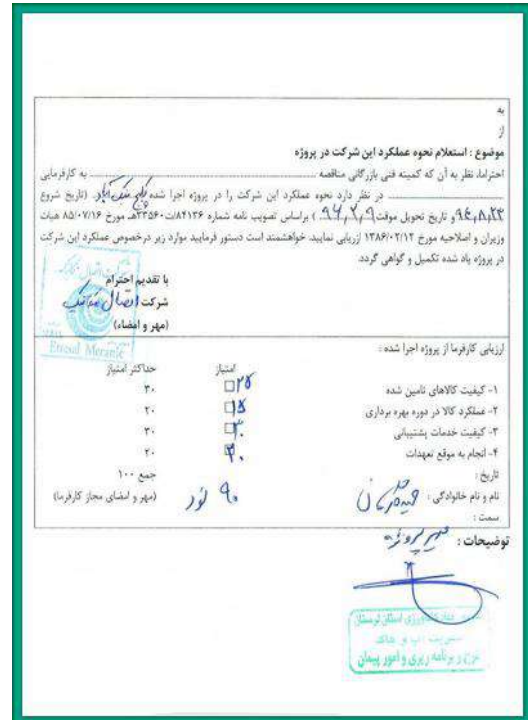 به
از
موضوع : استعلام نحوه عملکرد این شرکت در پروژه
احتراما، نظر به آن که کمیته فنی بازرگانی مناقصه ........ به کارفرمایی
........ در نظر دارد نحوه عملکرد این شرکت را در پروژه اجرا شده (تاریخ شروع
۹۴٫۸٫۲۴ و تاریخ تحویل موقت ۹۶٫۲٫۹ ) براساس تصویب نامه شماره ۸۴۱۳۶/ت۲۳۵۶۰هـ مورخ ۸۵/۰۷/۱۶ هیات
وزیران و اصلاحیه مورخ ۱۳۸۶/۰۲/۱۲ ارزیابی نمایید. خواهشمند است دستور فرمایید موارد زیر درخصوص عملکرد این شرکت
در پروژه یاد شده تکمیل و گواهی گردد.
با تقدیم احترام
شرکت اتصال مکانیک
(مهر و امضاء)
Etesal Mecanic
ارزیابی کارفرما از پروژه اجرا شده :
امتیاز حداکثر امتیاز
۱- کیفیت کالاهای تامین شده ۲۵ ۳۰
۲- عملکرد کالا در دوره بهره برداری ۱۵ ۲۰
۳- کیفیت خدمات پشتیبانی ۳۰ ۳۰
۴- انجام به موقع تعهدات ۲۰ ۲۰
تاریخ : جمع ۱۰۰
نام و نام خانوادگی : ۹۰ نود (مهر و امضای مجاز کارفرما)
سمت :
توضیحات : مدیر پروژه
جهاد کشاورزی استان لرستان
مدیریت آب و خاک
طرح و برنامه ریزی و امور پیمان